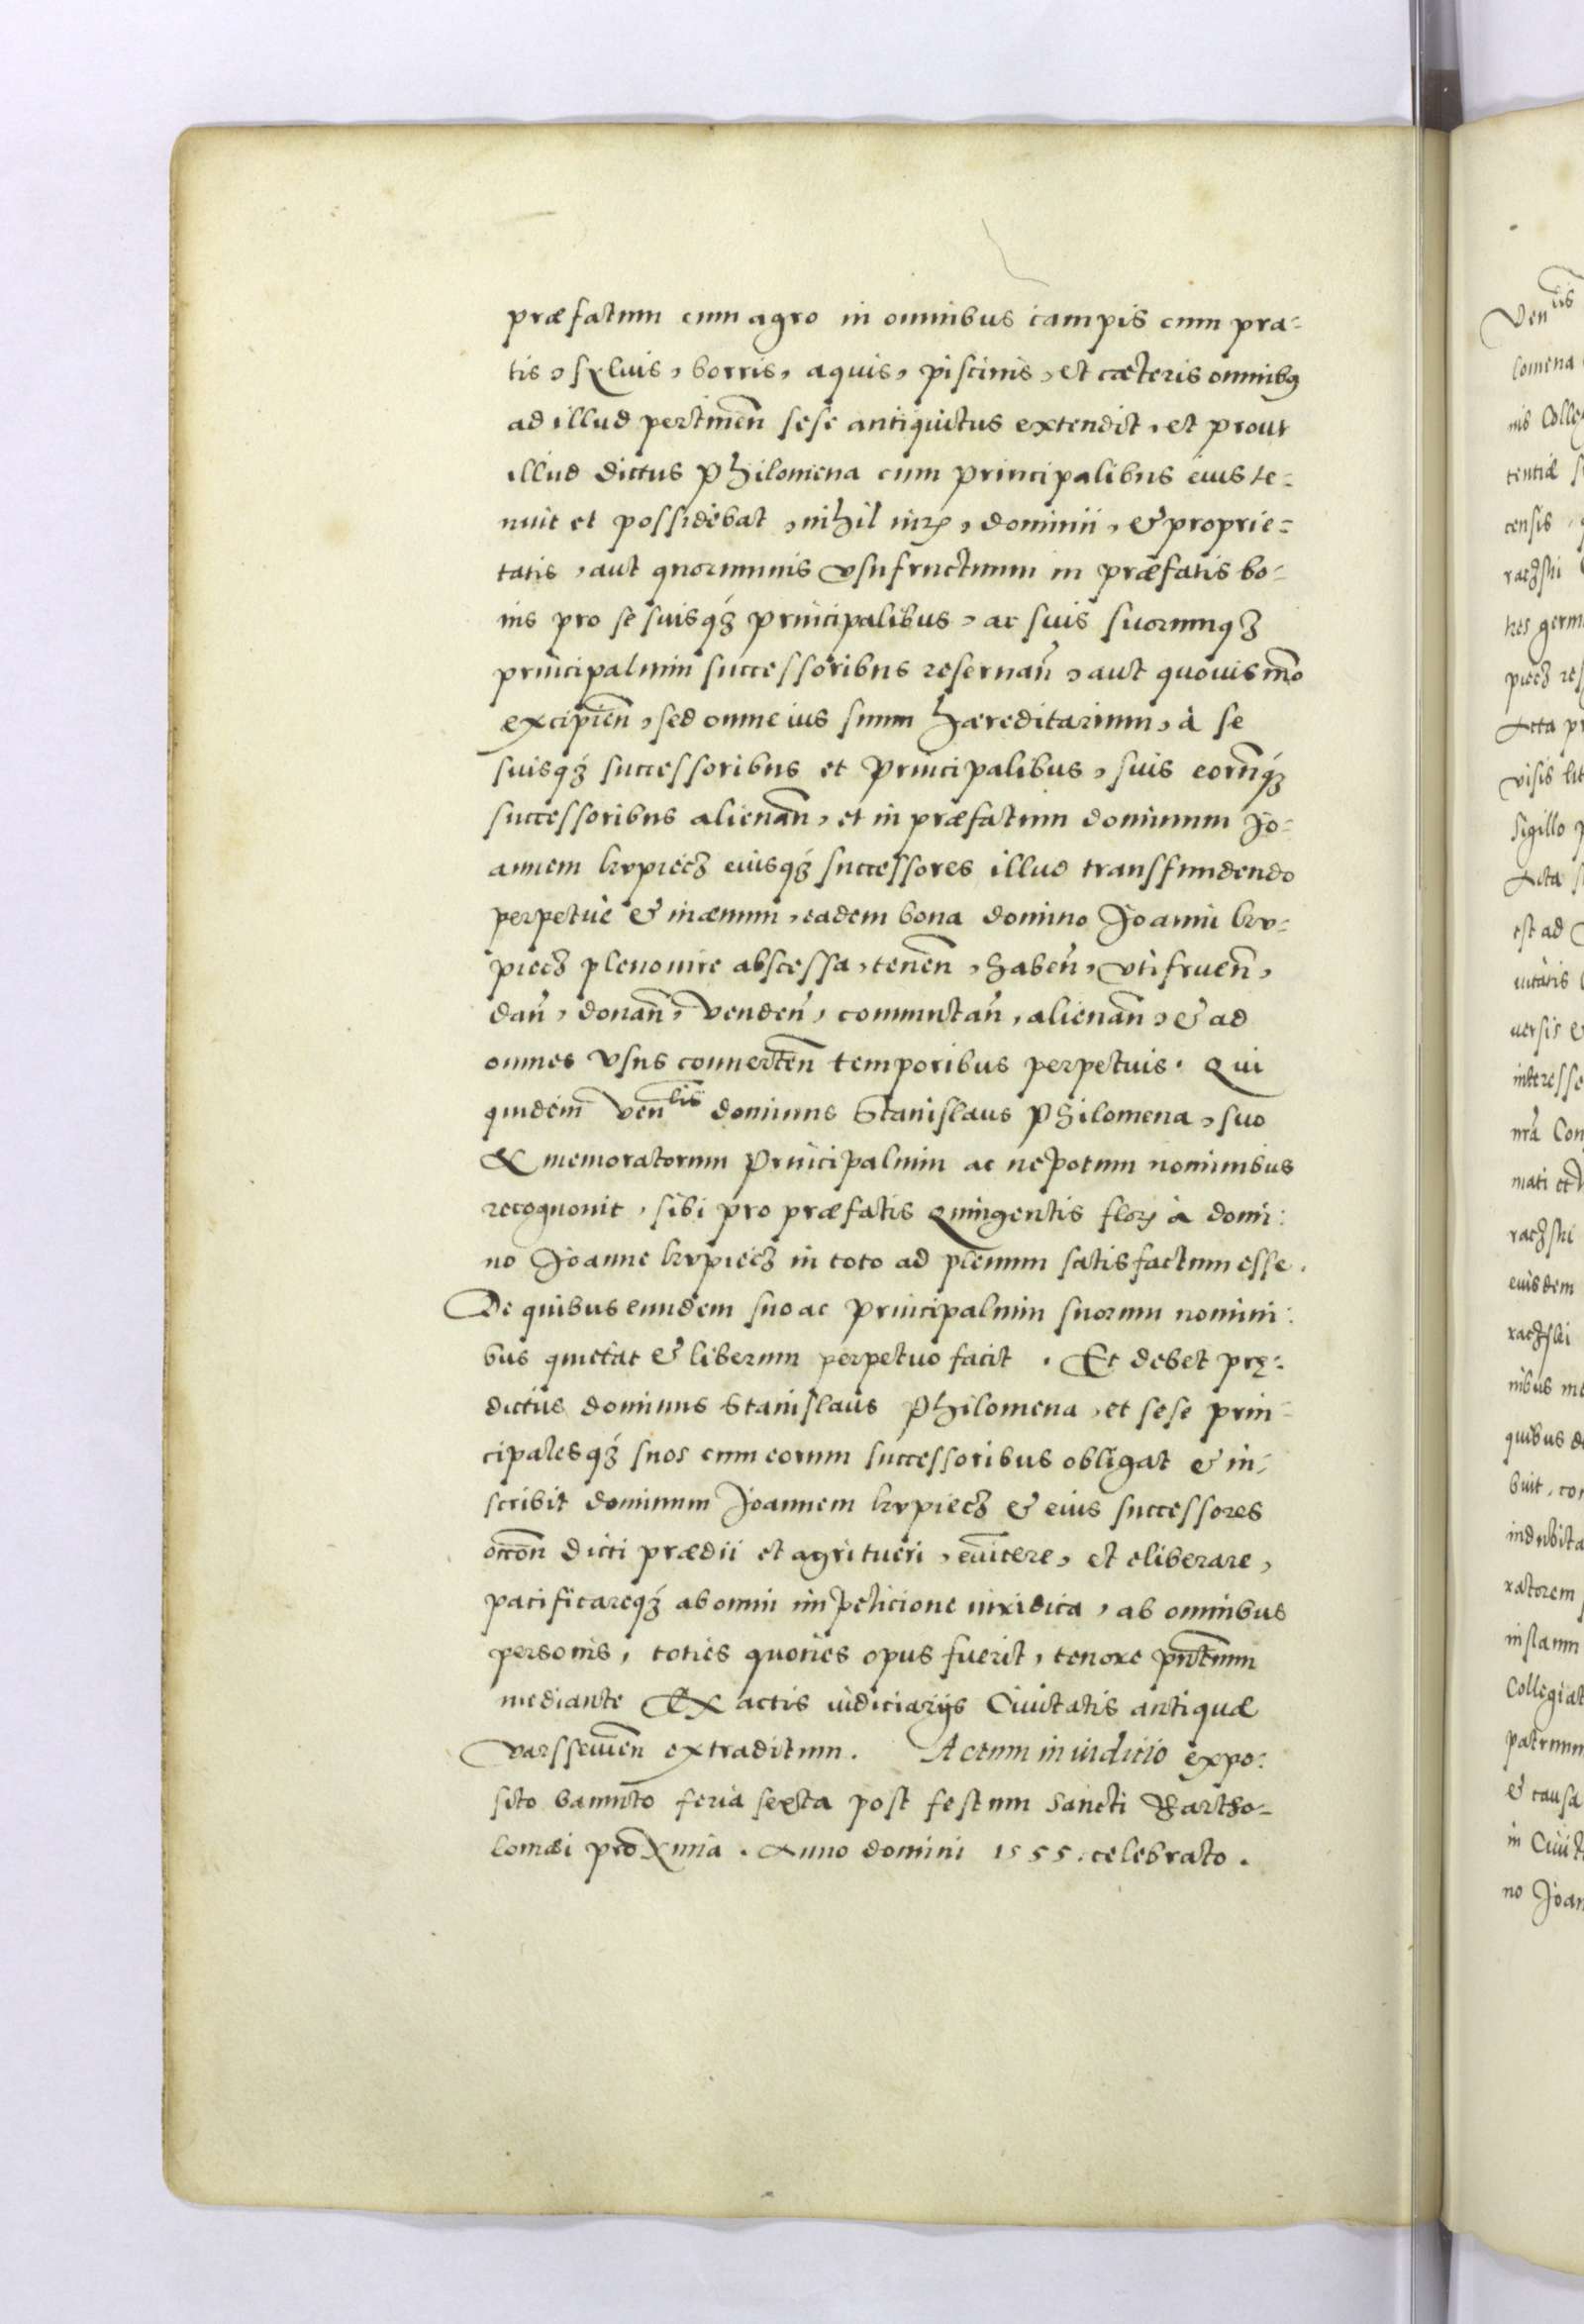 præfatum cum agro in omnibus campis cum pra=
tis, sylvis, borris, aquis, piscinis, et cæteris omnibꝰ
ad illud pertinen̄ sese antiquitus extendit, et prout
illud dictus Philomena cum principalibus eius te=
nuit et possidebat, nihil iurꝭ, dominii, & proprie=
tatis, aut quorumuis vsufructuum in præfatis bo=
nis pro se suisqꝫ principalibus, ac suis suorumqꝫ
principalium successoribus reseruan̄, aut quouis mō̄
excipien̄, sed omne ius suum hæreditarium, à se
suisqꝫ successoribus et principalibus, suis eorūqꝫ
successoribus alienan̄, et in præfatum dominum Jo=
annem krvpiecz eiusqꝫ successores illud transfundendo
perpetue & inæuum, eadem bona domino Joanni krv=
piecz pleno iure abscessa, tenen̄, haben̄, vtifruen̄,
dan̄, donan̄, venden̄, commutan̄, alienan̄, & ad
omnes vsus conuerten̄ temporibus perpetuis. Qui
quidem ven̄lis dominus Stanislaus Philomena, suo
& memoratorum principalium ac nepotum nominibus
recognouit, sibi pro præfatis Quingentis florꝭ à domi:
no Joanne krvpiecz in toto ad plenum satisfactum esse.
De quibus eundem suo ac principalium suorum nomini:
bus quietat & liberum perpetuo facit. Et debet prę=
dictus dominus Stanislaus Philomena, et sese prin=
cipalesqꝫ suos cum eorum successoribus obligat & in=
scribit dominum Joannem krvpiecz & eius successores
occōn̄ dicti prædii et agri tueri, euincere, et eliberare,
pacificareqꝫ ab omni impeticione iuridica, ab omnibus
personis, toties quoties opus fuerit, tenore pn̄tium
mediante Ex actis iudiciarijs Ciuitatis antiquæ
varsseuien̄ extraditum. Actum in iudicio expo:
sito bannito feria sexta post festum Sancti Bartho=
lomæi proxima. Anno domini 1555. celebrato.
Ven iis
lomena
nis Colle
tentiæ
censis
raczski
tres germ
piecz
Acta pr
visis lit
sigillo
Acta
est ad
uitatis
uersis &
interesse
nrā Con
mati et
raczski
eiusdem
raczski
nibus me
quibus
buit, con
indubita
ratorem
instann
Collegiat
patruum
& causa
in Ciuit
no Joan